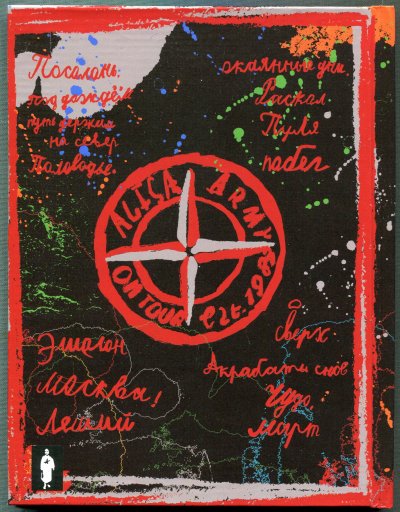 Посолонь
под дождём
путь держим
на север
Половодье
окаянные дни
Раскол
Пуля
побег
ALISA ARMY
ON TOUR
Эшелон
Москва!
Леший
Акробаты снов
Чудо
март